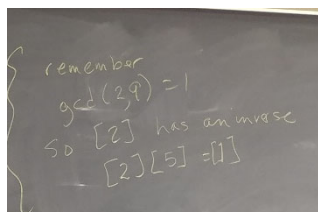 remember
gcd(2,9) = 1
so [2] has an inverse
[2][5] = [1]